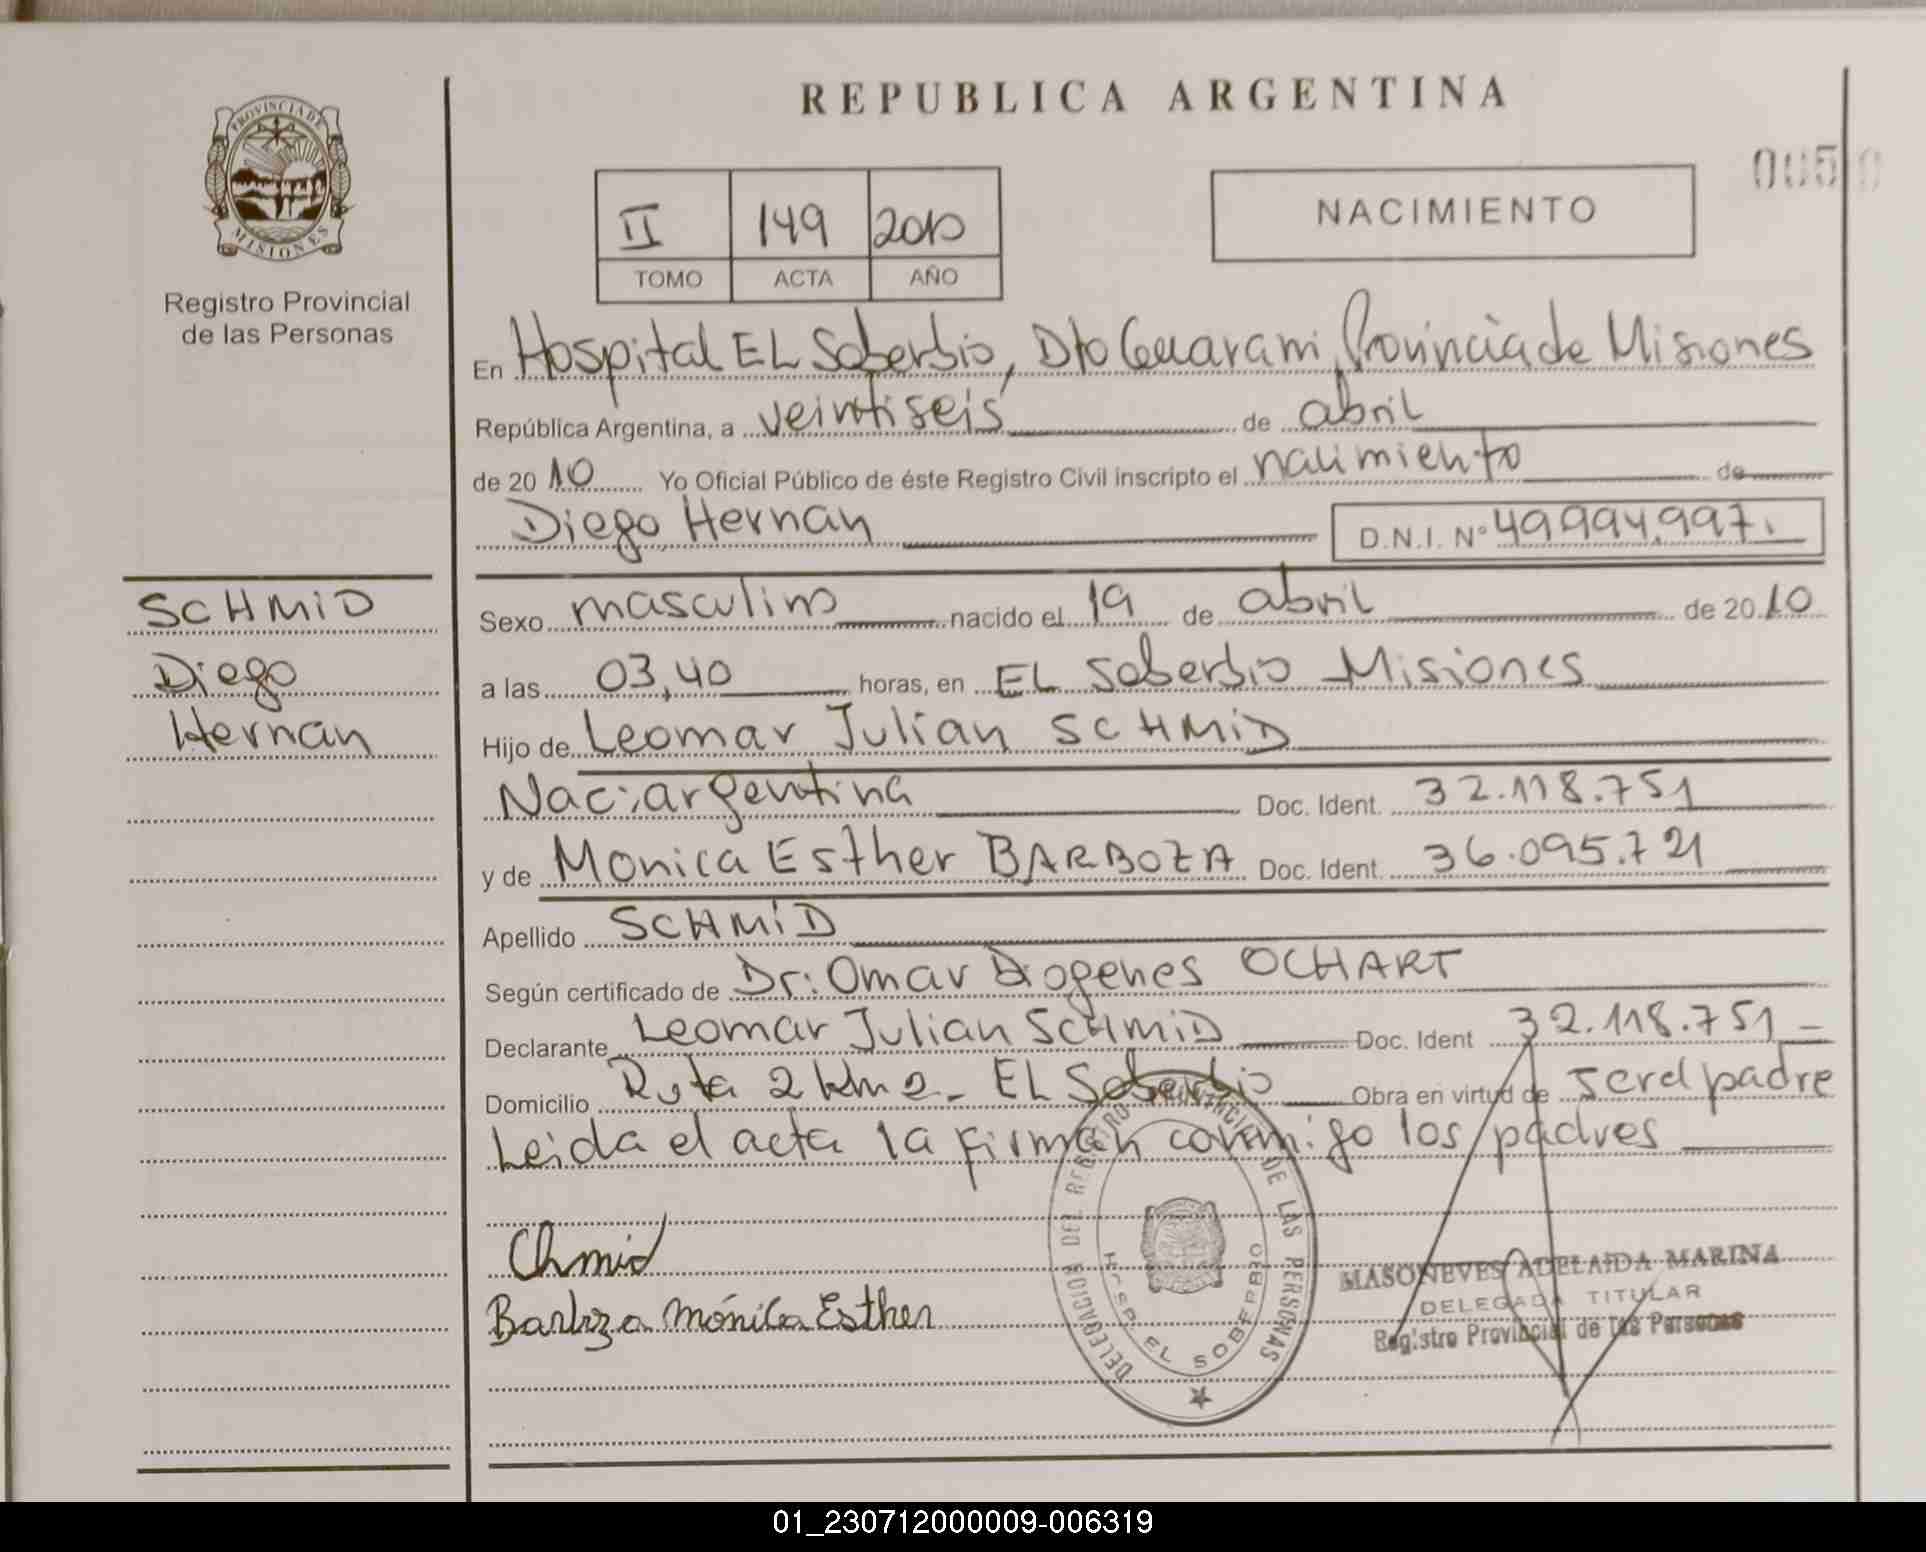 REPUBLICA ARGENTINA
PROVINCIA DE
MISIONES
Registro Provincial
de las Personas
005
II 149 2010
TOMO ACTA AÑO
NACIMIENTO
En Hospital EL Soberbio, Dto Guarani, Provincia de Misiones
República Argentina, a veintiseis de abril
de 2010 Yo Oficial Público de éste Registro Civil inscripto el nacimiento de
Diego Hernan D.N.I. Nº 49.994.997.
SCHMiD
Diego
Hernan
Sexo masculino nacido el 19 de abril de 2010
a las 03,40 horas, en EL Soberbio Misiones
Hijo de Leomar Julian SCHMiD
Nac: argentina Doc. Ident. 32.118.751
y de Monica Esther BARBOZA Doc. Ident. 36.095.721
Apellido SCHMiD
Según certificado de Dr: Omar Diogenes OCHART
Declarante Leomar Julian SCHMiD Doc. Ident 32.118.751
Domicilio Ruta 2 km 2 - EL Soberbio Obra en virtud de ser el padre
Leida el acta la firman conmigo los padres
Chmid
Barboza Mónica Esther
DELEGACION DEL REGISTRO PROVINCIAL DE LAS PERSONAS
HOSP. EL SOBERBIO
MASONEVES ADELAIDA MARINA
DELEGADA TITULAR
Registro Provincial de las Personas
01_230712000009-006319